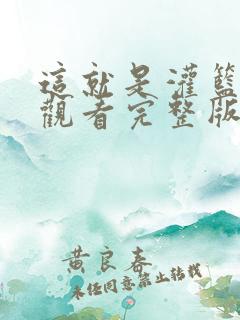 這就是灌籃
觀看完整版
黄良春
未经同意禁止转载